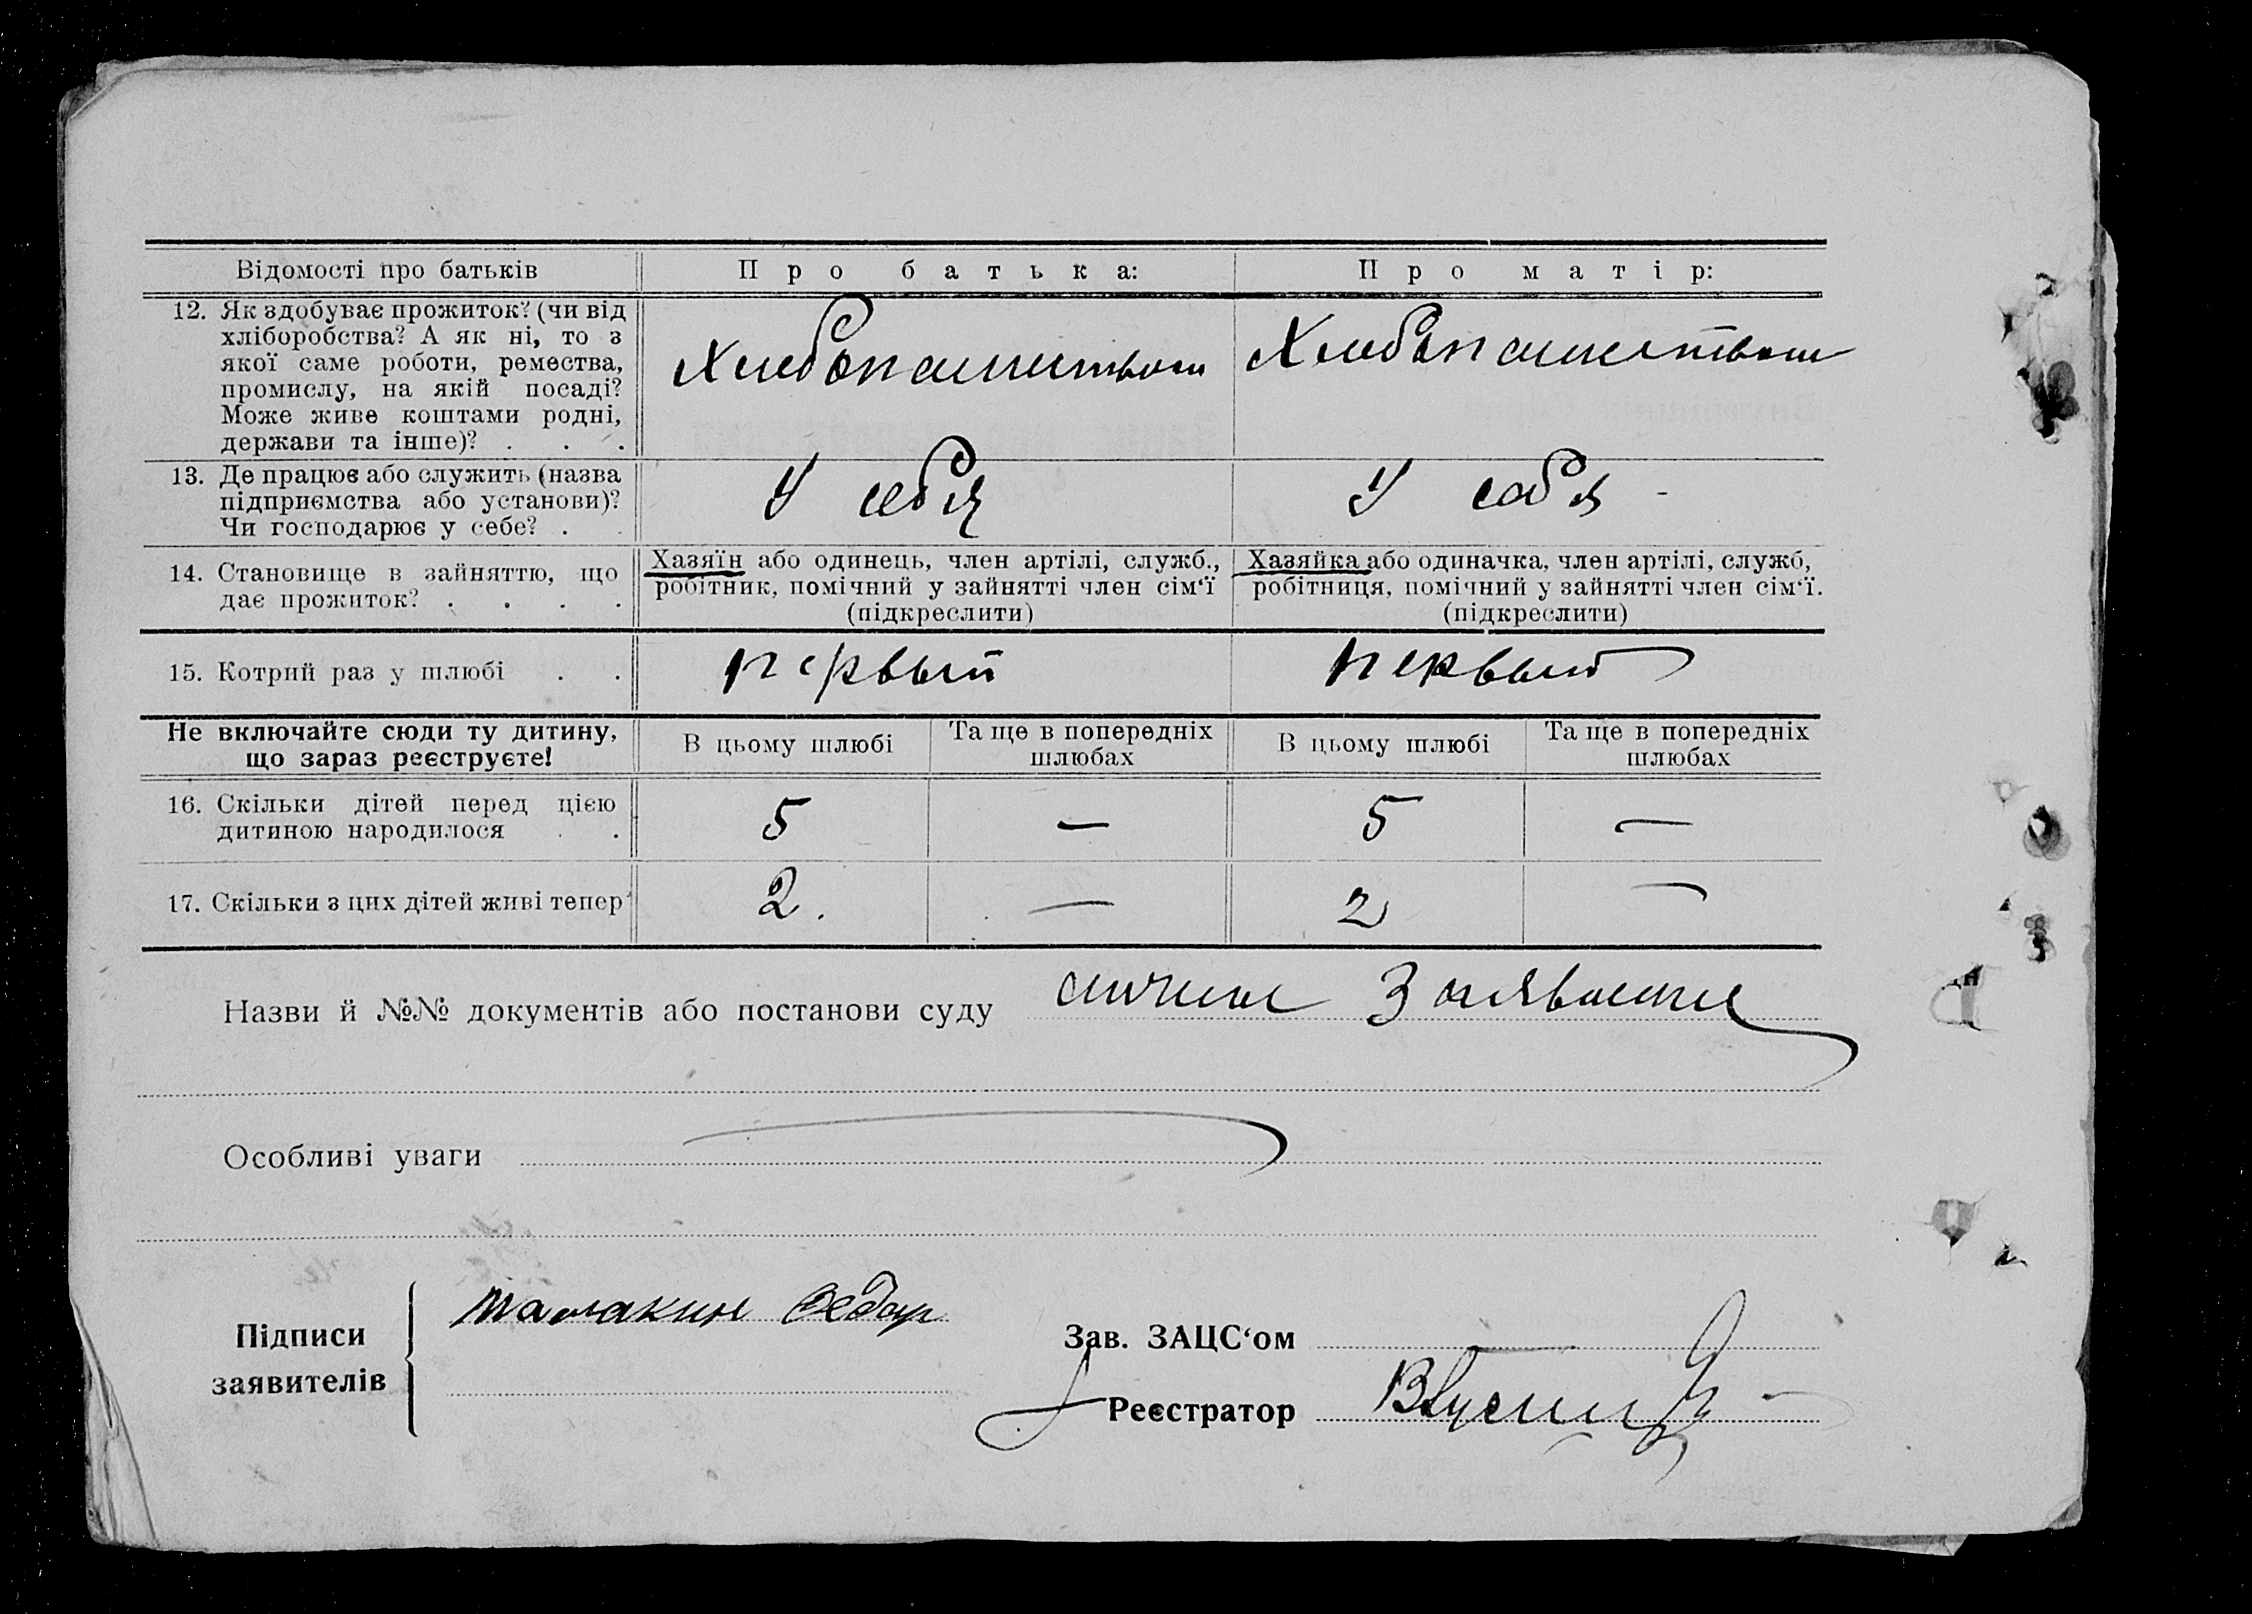 Відомості про батьків
Про батька:
Про матір:
12. Як здобуває прожиток? (чи від
хліборобства? А як ні, то з
якої саме роботи, ремества,
промислу, на якій посаді?
Може живе коштами родні,
держави та інше)? . . .
Хлебопашеством
Хлебопашеством
13. Де працює або служить (назва
підприємства або установи)?
Чи господарює у себе? . .
У себя
У себя -
14. Становище в зайняттю, що
дає прожиток? . . . .
Хазяїн або одинець, член артілі, служб.,
робітник, помічний у зайнятті член сім‘ї
(підкреслити)
Хазяйка або одиначка, член артілі, служб,
робітниця, помічний у зайнятті член сім‘ї.
(підкреслити)
15. Котрий раз у шлюбі . .
первый
первый
Не включайте сюди ту дитину,
що зараз реєструєте!
В цьому шлюбі
Та ще в попередніх
шлюбах
В цьому шлюбі
Та ще в попередніх
шлюбах
16. Скільки дітей перед цією
дитиною народилося . .
5 — 5 —
17. Скільки з цих дітей живі тепер
2. — 2 —
Назви й №№ документів або постанови суду
Особливі уваги
Підписи
заявителів
Федор
Зав. ЗАЦС‘ом
Реєстратор